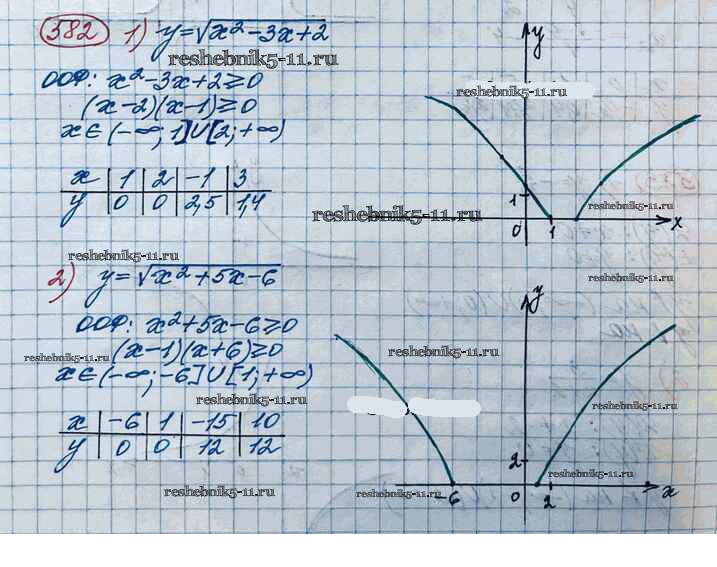 582 1) y=√x²-3x+2
reshebnik5-11.ru
ООФ: x²-3x+2≥0
(x-2)(x-1)≥0
x∈(-∞; 1]∪[2; +∞)
x | 1 | 2 | -1 | 3
y | 0 | 0 | 2,5 | 1,4
reshebnik5-11.ru
y
reshebnik5-11.ru
1
reshebnik5-11.ru
0 1 x
reshebnik5-11.ru
2) y=√x²+5x-6
ООФ: x²+5x-6≥0
(x-1)(x+6)≥0
reshebnik5-11.ru
x∈(-∞; -6]∪[1; +∞)
reshebnik5-11.ru
x | -6 | 1 | -15 | 10
y | 0 | 0 | 12 | 12
reshebnik5-11.ru
y
reshebnik5-11.ru
reshebnik5-11.ru
2
reshebnik5-11.ru
reshebnik5-11.ru
-6 0 2 x